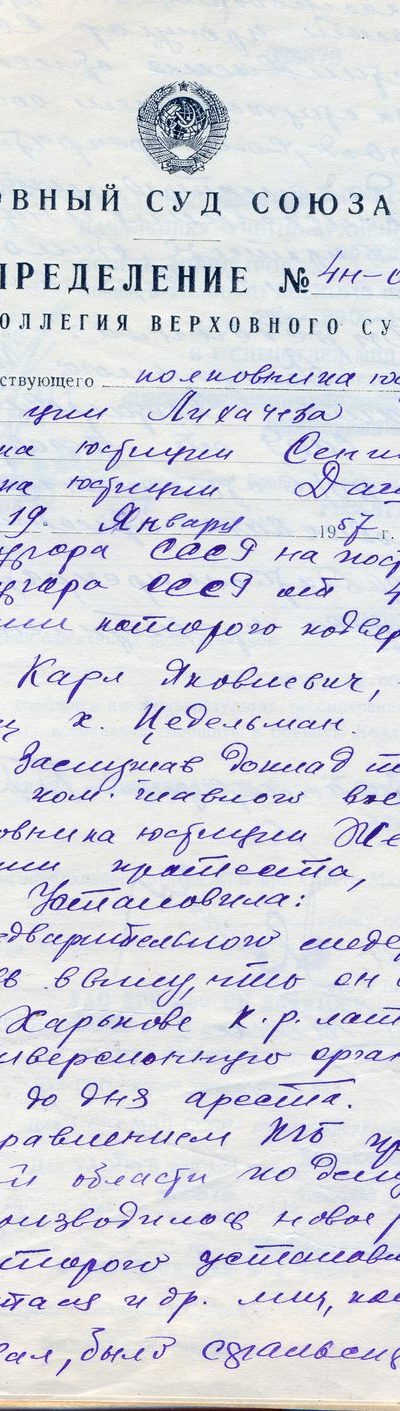 ОВНЫЙ СУД СОЮЗА
ПРЕДЕЛЕНИЕ № 4н-0
ОЛЛЕГИЯ ВЕРХОВНОГО СУ
ствующего полковника юс
ции Лихачева
на юстиции
на юстиции
19 Января 1957 г.
СССР на
СССР от 4
ии которого подвер
Карл Яковлевич,
х. Цедельман
Заслушав доклад т
пом. главного вое
овника юстиции
ии протеста,
Установила:
едварительного следс
в виду, что он
Харькове к.р. лат
иверсионную орган
до дня ареста.
равлением КГБ пр
й области по делу
оизводилось новое р
оторого установл
и др. лиц,
было